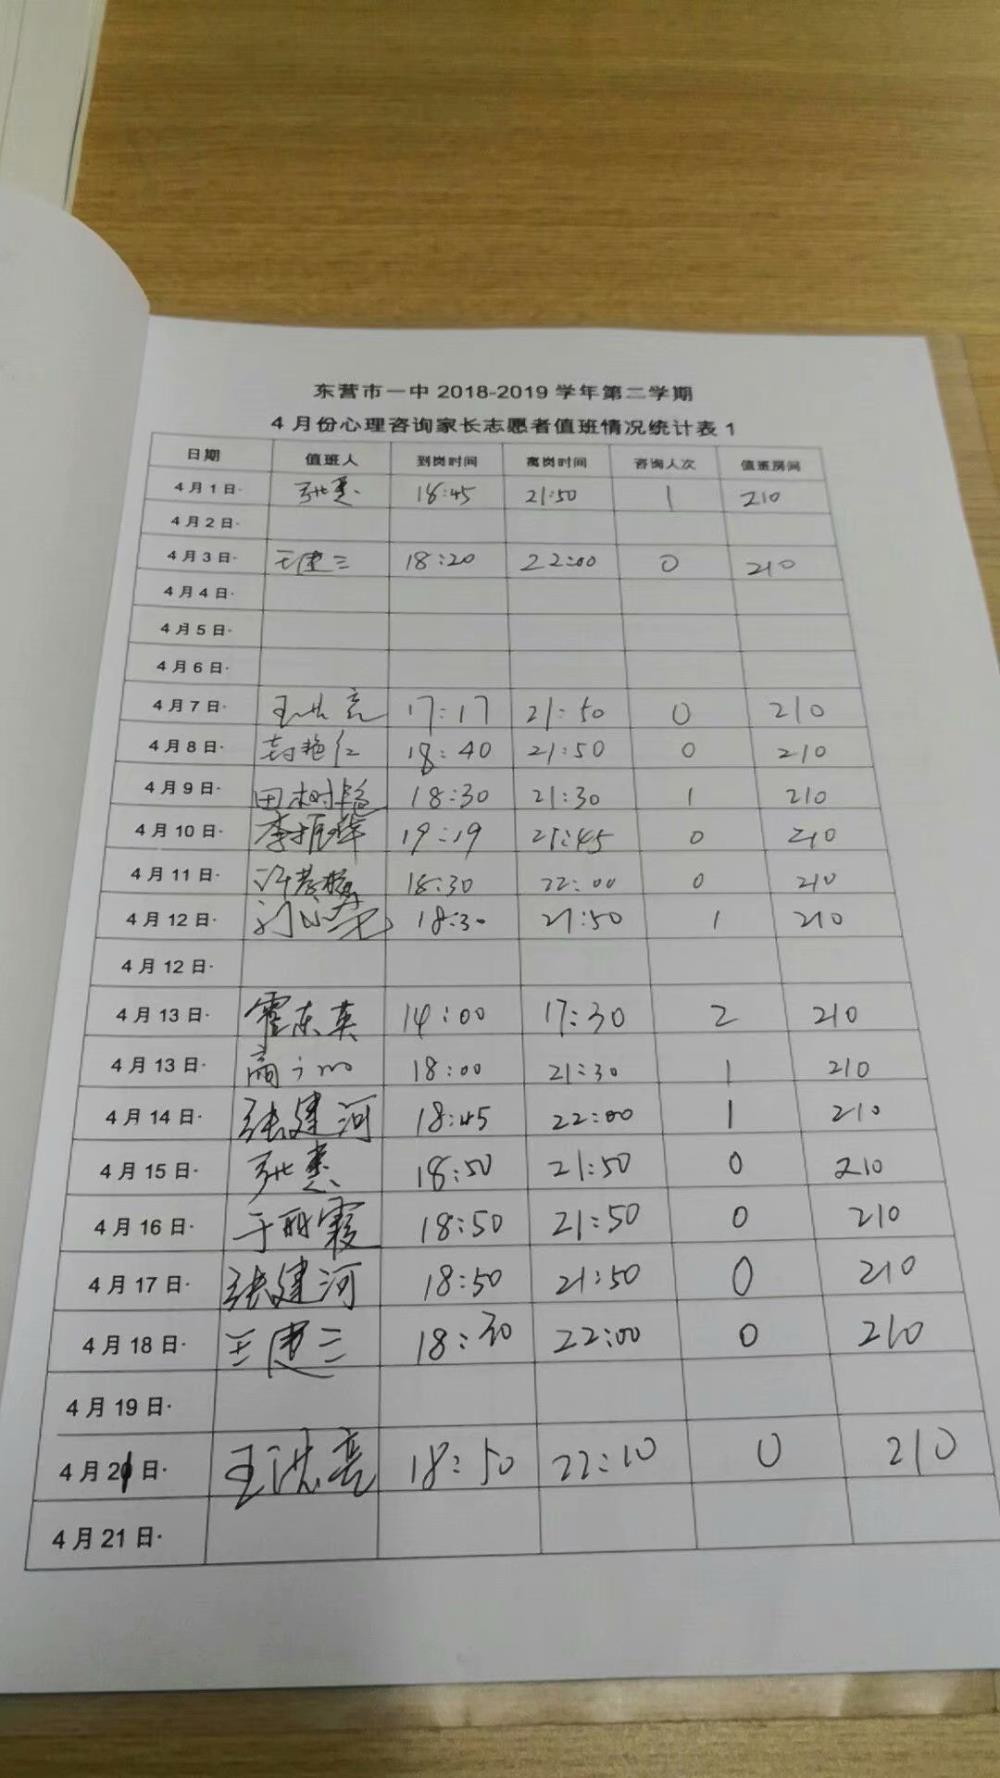 东营市一中 2018-2019 学年第二学期
4 月份心理咨询家长志愿者值班情况统计表 1
日期 值班人 到岗时间 离岗时间 咨询人次 值班房间
4 月 1 日· 张惠 18:45 21:50 1 210
4 月 2 日·
4 月 3 日· 王建三 18:20 22:00 0 210
4 月 4 日·
4 月 5 日·
4 月 6 日·
4 月 7 日· 王洪亮 17:17 21:50 0 210
4 月 8 日· 18:40 21:50 0 210
4 月 9 日· 田树艳 18:30 21:30 1 210
4 月 10 日· 李振华 19:19 21:45 0 210
4 月 11 日· 18:30 22:00 0 210
4 月 12 日· 18:30 21:50 1 210
4 月 12 日·
4 月 13 日· 霍东英 14:00 17:30 2 210
4 月 13 日· 18:00 21:30 1 210
4 月 14 日· 张建河 18:45 22:00 1 210
4 月 15 日· 张惠 18:50 21:50 0 210
4 月 16 日· 于丽霞 18:50 21:50 0 210
4 月 17 日· 张建河 18:50 21:50 0 210
4 月 18 日· 王建三 18:30 22:00 0 210
4 月 19 日·
4 月 21 日· 王洪亮 18:50 22:10 0 210
4 月 21 日·